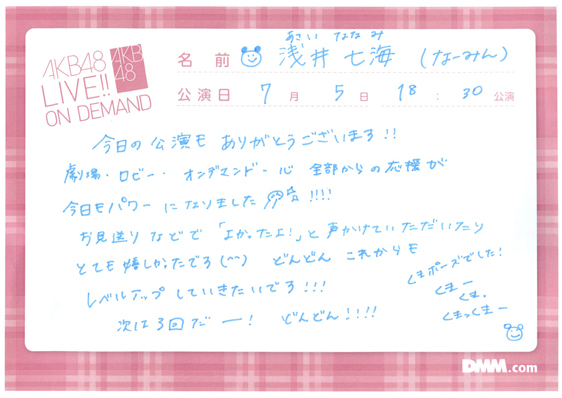 AKB48
LIVE!!
ON DEMAND
AKB
48
あさい ななみ
名前 浅井 七海 (なーみん)
公演日 7月 5日 18:30 公演
今日の公演も ありがとうございまる!!
劇場・ロビー・オンデマンド・心 全部からの応援が
今日もパワーになりました!!!!
お見送りなどで「よかったよ!」と声かけていただいたり
とても嬉しかったでる(^^) どんどん これからも
レベルアップしていきたいでる!!!
次は3回だー! どんどん!!!!
くまポーズでした!
くまー
くま。
くまっくまー
DMM.com